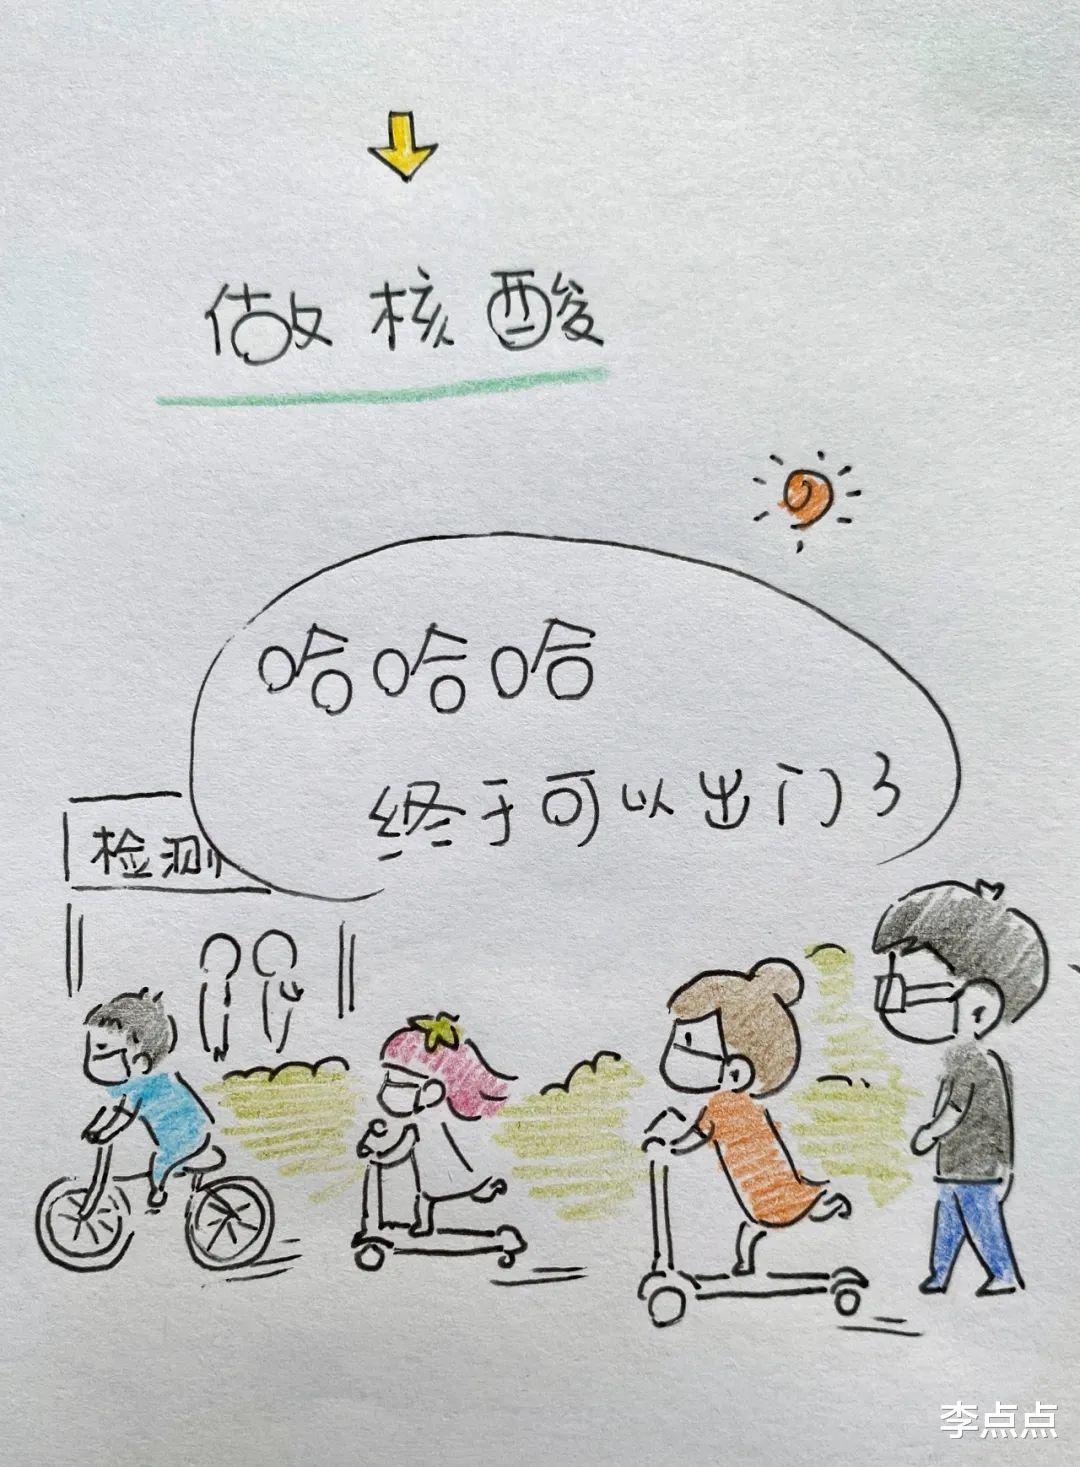 做核酸
哈哈哈
终于可以出门了
检测
李点点